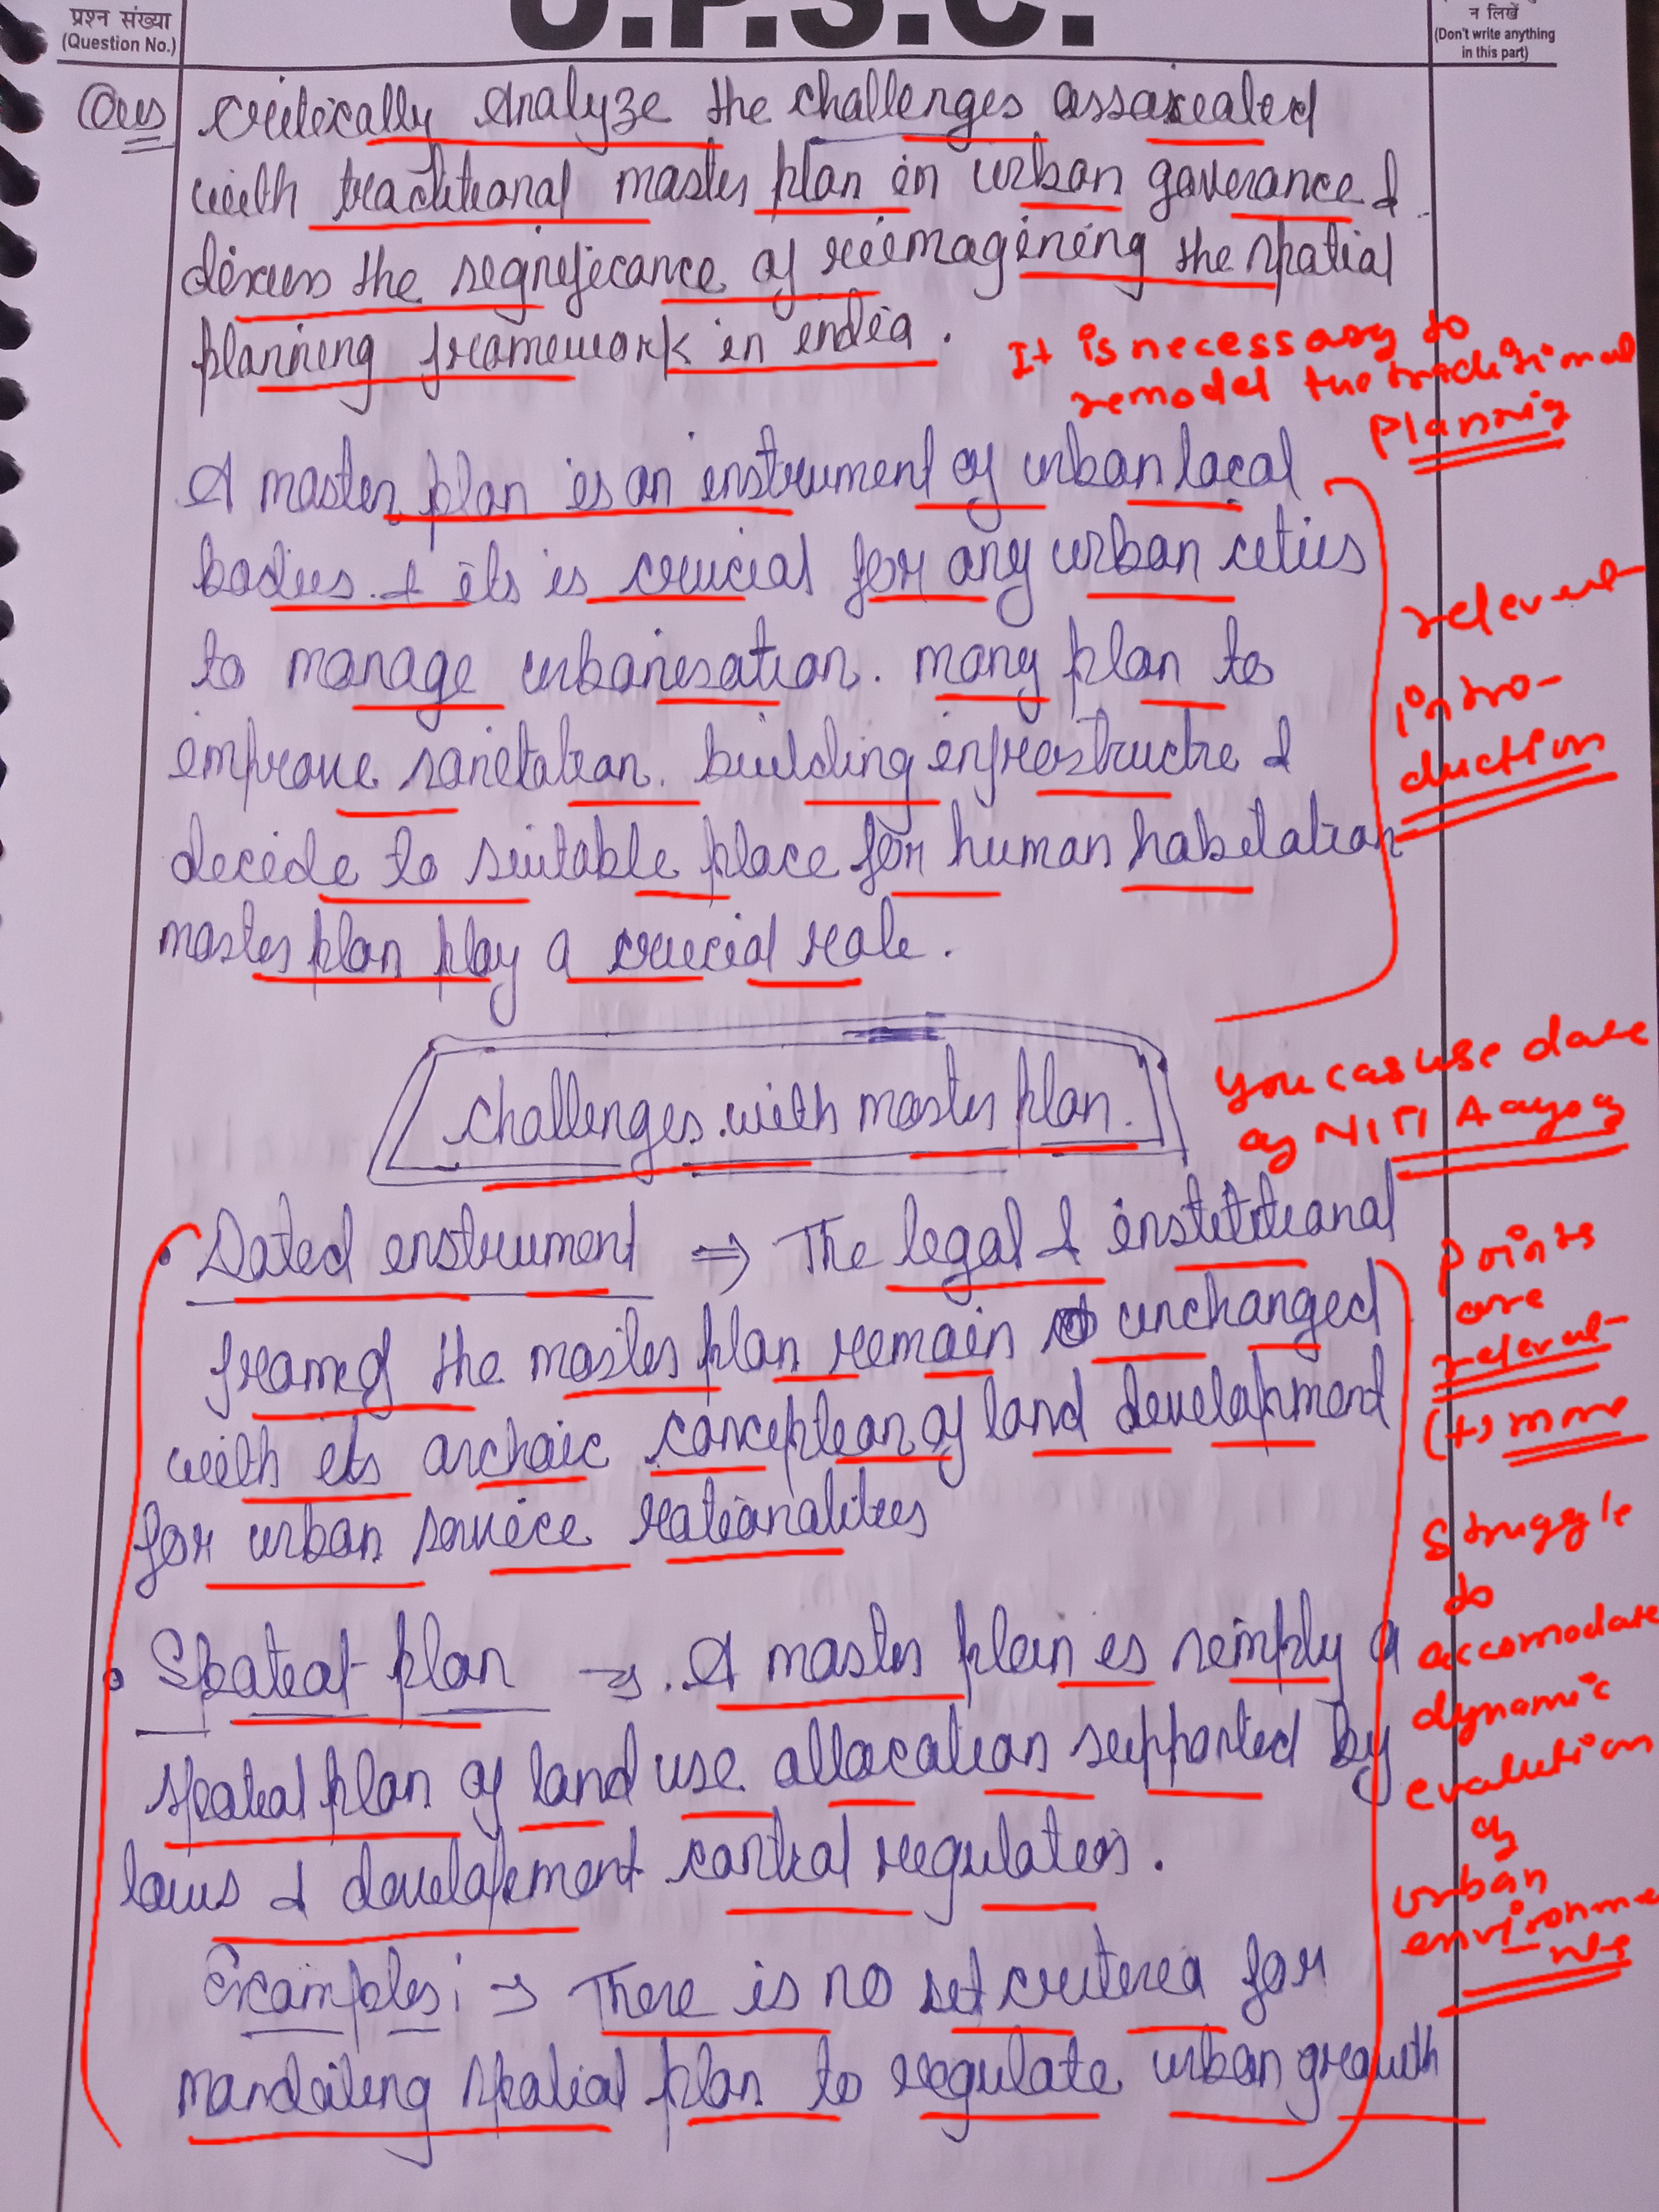 प्रश्न संख्या
(Question No.)
U.P.S.C.
न लिखें
(Don't write anything
in this part)
Ques
Critically Analyze the challenges assaxealed
with traditional master plan in urban goverance &
discuss the segnificance of reimagining the spatial
planning framework in india.
It is necessary to
remodel the traditional
Plannig
A master plan is an instrument of urban local
bodies. & its is crucial for any urban cities
to manage urbanisation. many plan to
improve sanitation. building infrastructre &
decide to suitable place for human habitation
master plan play a crucial role.
relevent
intro-
duction
challenges with master plan.
You can use data
of NITI Aayog
• Dated instrument ⇒ The legal & institutional
frame of the master plan remain unchanged
with its archaic conception of land development
for urban service rationalities
Points
are
relevent
(+) more
Struggle
to
accomodate
dynamic
evalution
of
urban
environme
nts
• Spatial plan → A master plan is simply a
spatial plan of land use allocation supported by
laws & development control regulation.
Examples: → There is no set criteria for
mandating spatial plan to regulate urban growth